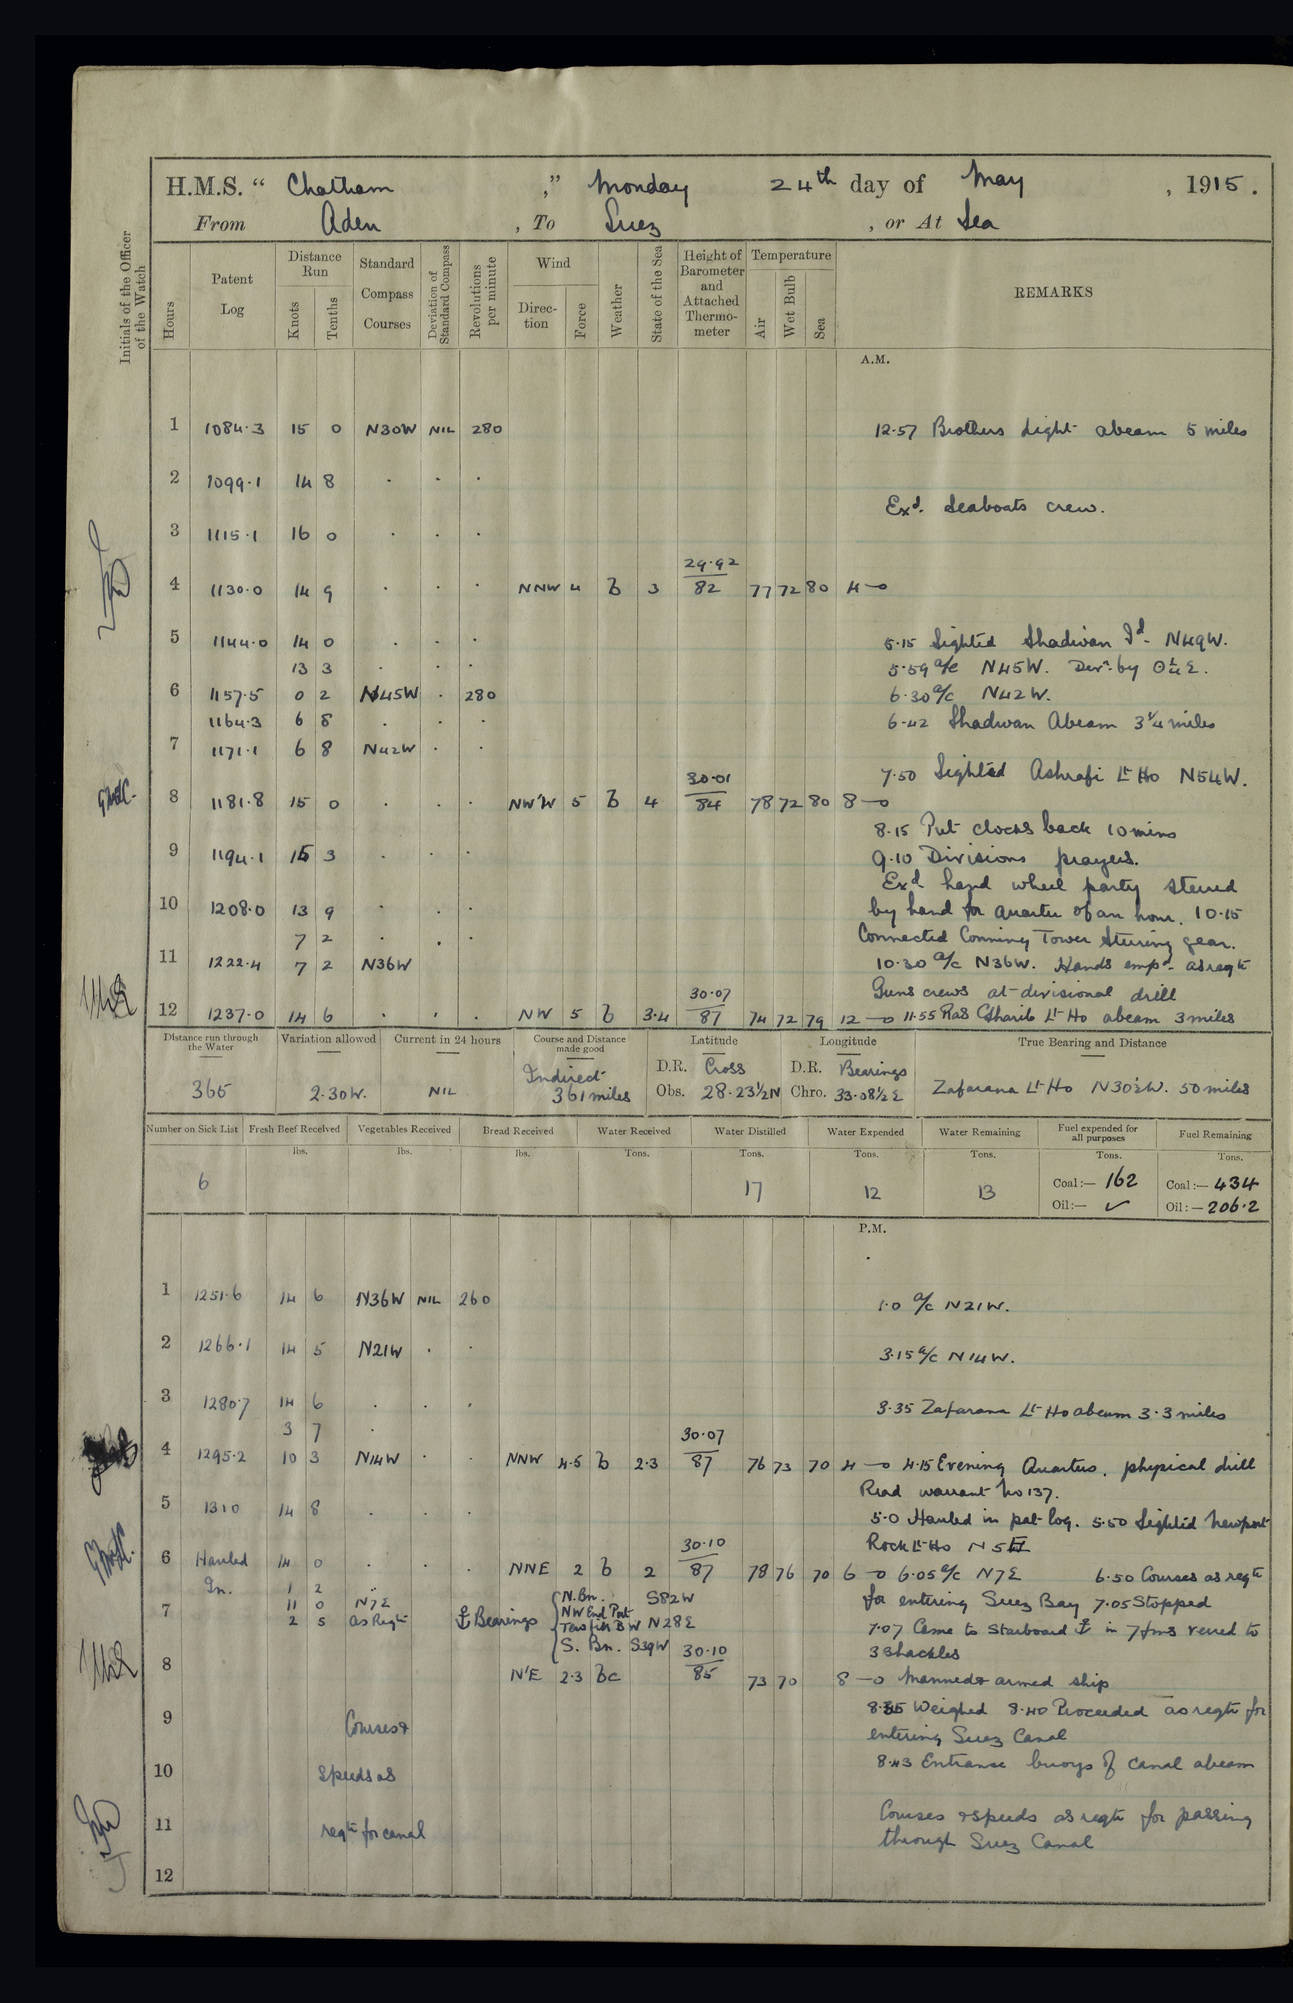 H.M.S. “ Chatham ,” Monday 24th day of May , 1915 .
From Aden , To Suez , or At Sea
Initials of the Officer of the Watch
Hours
Patent Log
Distance Run
Knots
Tenths
Standard Compass Courses
Deviation of Standard Compass
Revolutions per minute
Wind
Direction
Force
Weather
State of the Sea
Height of Barometer and Attached Thermometer
Temperature
Air
Wet Bulb
Sea
REMARKS
A.M.
1 1084.3 15 0 N30W NIL 280 12.57 Brothers Light abeam 5 miles
2 1099.1 14 8 . . .
Exd. Seaboats crew.
3 1115.1 16 0 . . .
4 1130.0 14 9 . . . NNW 4 b 3 29.92/82 77 72 80 4 —o
5 1144.0 14 0 . . . 5.15 Sighted Shadwan Id. N49W.
13 3 . . . 5.59 a/c N45W. Devn. by
6 1157.5 0 2 N45W . 280 6.30 a/c N42W.
1164.3 6 8 . . . 6.42 Shadwan Abeam 3¼ miles
7 1171.1 6 8 N42W . .
7.50 Sighted Ashrafi Lt Ho N54W.
8 1181.8 15 0 . . . NW'W 5 b 4 30.01/84 78 72 80 8 —o
8.15 Put clocks back 10 mins
9 1194.1 15 3 . . . 9.10 Divisions prayers.
Exd hand wheel party steered
10 1208.0 13 9 . . . by hand for quarter of an hour. 10.15
7 2 . . . Connected Conning Tower steering gear.
11 1222.4 7 2 N36W 10.30 a/c N36W. Hands empd. as reqte
Guns crews at divisional drill
12 1237.0 14 6 . . . NW 5 b 3.4 30.07/87 74 72 79 12 —o 11.55 Ras Gharib Lt Ho abeam 3 miles
Distance run through the Water
Variation allowed
Current in 24 hours
Course and Distance made good
Latitude
Longitude
True Bearing and Distance
365 2.30W. NIL Indirect 361 miles
D.R. Cross D.R. Bearings
Obs. 28.23½N Chro. 33.08½E Zafarana Lt Ho N30½W. 50 miles
Number on Sick List
Fresh Beef Received
Vegetables Received
Bread Received
Water Received
Water Distilled
Water Expended
Water Remaining
Fuel expended for all purposes
Fuel Remaining
lbs. lbs. lbs. Tons. Tons. Tons. Tons. Tons. Tons.
6 17 12 13 Coal :— 162 Coal :— 434
Oil :— ✓ Oil :— 206.2
P.M.
1 1251.6 14 6 N36W NIL 260 1.0 a/c N21W.
2 1266.1 14 5 N21W . .
3.15 a/c N14W.
3 1280.7 14 6 . . . 3.35 Zafarana Lt Ho abeam 3.3 miles
3 7 .
4 1295.2 10 3 N14W . . NNW 4.5 b 2.3 30.07/87 76 73 70 4 —o 4.15 Evening Quarters. physical drill
Read warrant No 137.
5 1310 14 8 . . . 5.0 Hauled in pat log. 5.50 Sighted Newport
Rock Lt Ho N5E
6 Hauled 14 0 . . . NNE 2 b 2 30.10/87 78 76 70 6 —o 6.05 a/c N7E 6.50 Courses as reqte
In. 1 2 for entering Suez Bay 7.05 Stopped
7 11 0 N7E ⚓ Bearings N. Bn. S82W
2 5 as Reqte NW End Port Tewfik BW N28E 7.07 Came to Starboard ⚓ in 7 fms veered to
S. Bn. S39W 3 Shackles
8 N'E 2.3 bc 30.10/85 73 70 8 —o Manned & armed ship
8.35 Weighed 8.40 Proceeded as reqte for
9 Courses & entering Suez Canal
10 Speeds as 8.43 Entrance buoys of canal abeam
11 reqte for canal Courses & speeds as reqte for passing
through Suez Canal
12